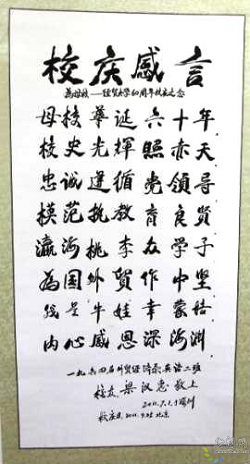 校庆感言
為母校——经贸大学60周年校庆之念
母校華诞六十年
校史光輝照亦天
忠诚遵循党領导
模范执教育良贤
瀛海桃李众学子
為国外贸作中坚
我是牛娃幸蒙
内心感恩深海渊
一九六四届外贸经济系英语二班
校友 梁汉忠 敬上
校庆日 北京